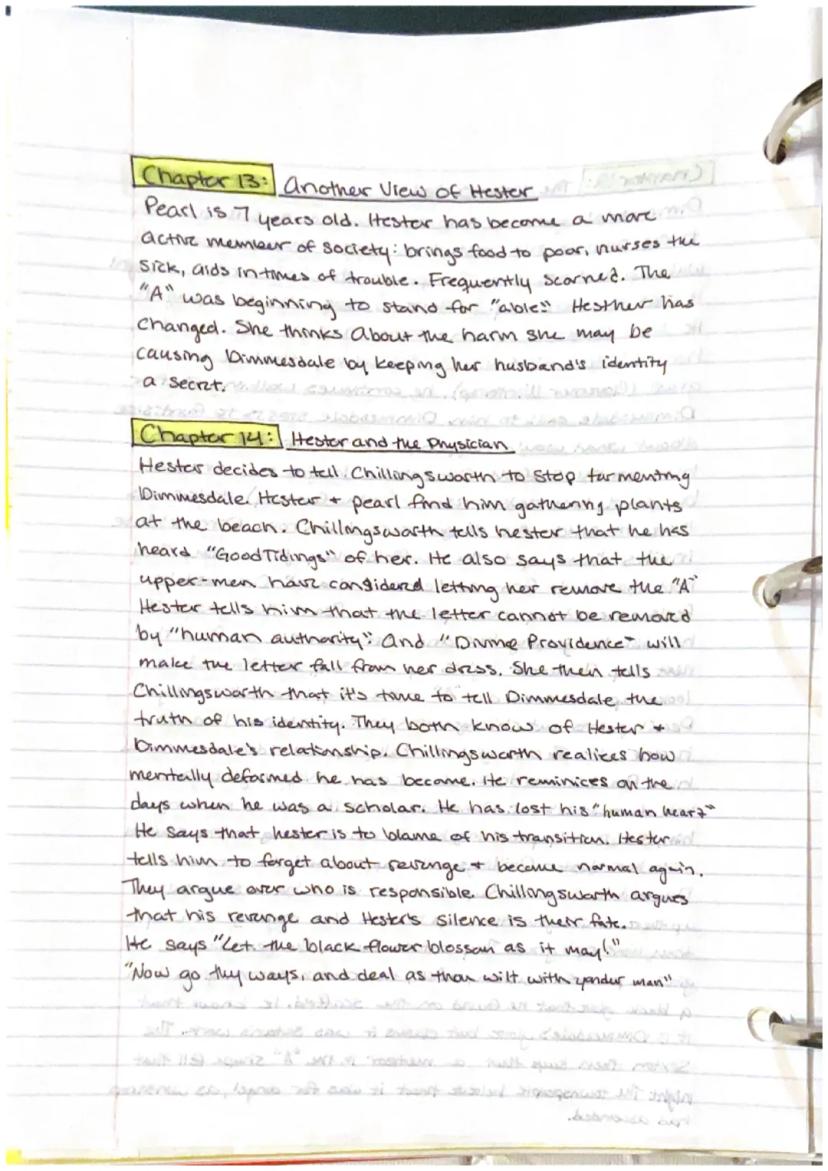 Chapter 13: Another View of Hester
Pearl is 7 years old. Hester has become a more
active member of society: brings food to poor, nurses the
sick, aids in times of trouble. Frequently scorned. The
"A" was beginning to stand for "able." Hesther has
changed. She thinks about the harm she may be
causing Dimmesdale by keeping her husband's identity
a secret.
Chapter 14: Hester and the Physician
Hester decides to tell Chillingsworth to stop tormenting
Dimmesdale. Hester + pearl find him gathering plants
at the beach. Chillingsworth tells hester that he has
heard "Good Tidings" of her. He also says that the
upper-men have considered letting her remove the "A"
Hester tells him that the letter cannot be removed
by "human authority". And "Divine Providence" will
make the letter fall from her dress. She then tells
Chillingsworth that it's time to tell Dimmesdale the
truth of his identity. They both know of Hester +
Dimmesdale's relationship. Chillingsworth realizes how
mentally deformed he has become. He reminices on the
days when he was a scholar. He has lost his "human heart"
He says that hester is to blame of his transition. Hester
tells him to forget about revenge + become normal again.
They argue over who is responsible. Chillingsworth argues
that his revenge and Hester's silence is their fate.
He says "Let the black flower blossom as it may!"
"Now go thy ways, and deal as thou wilt with yonder man"